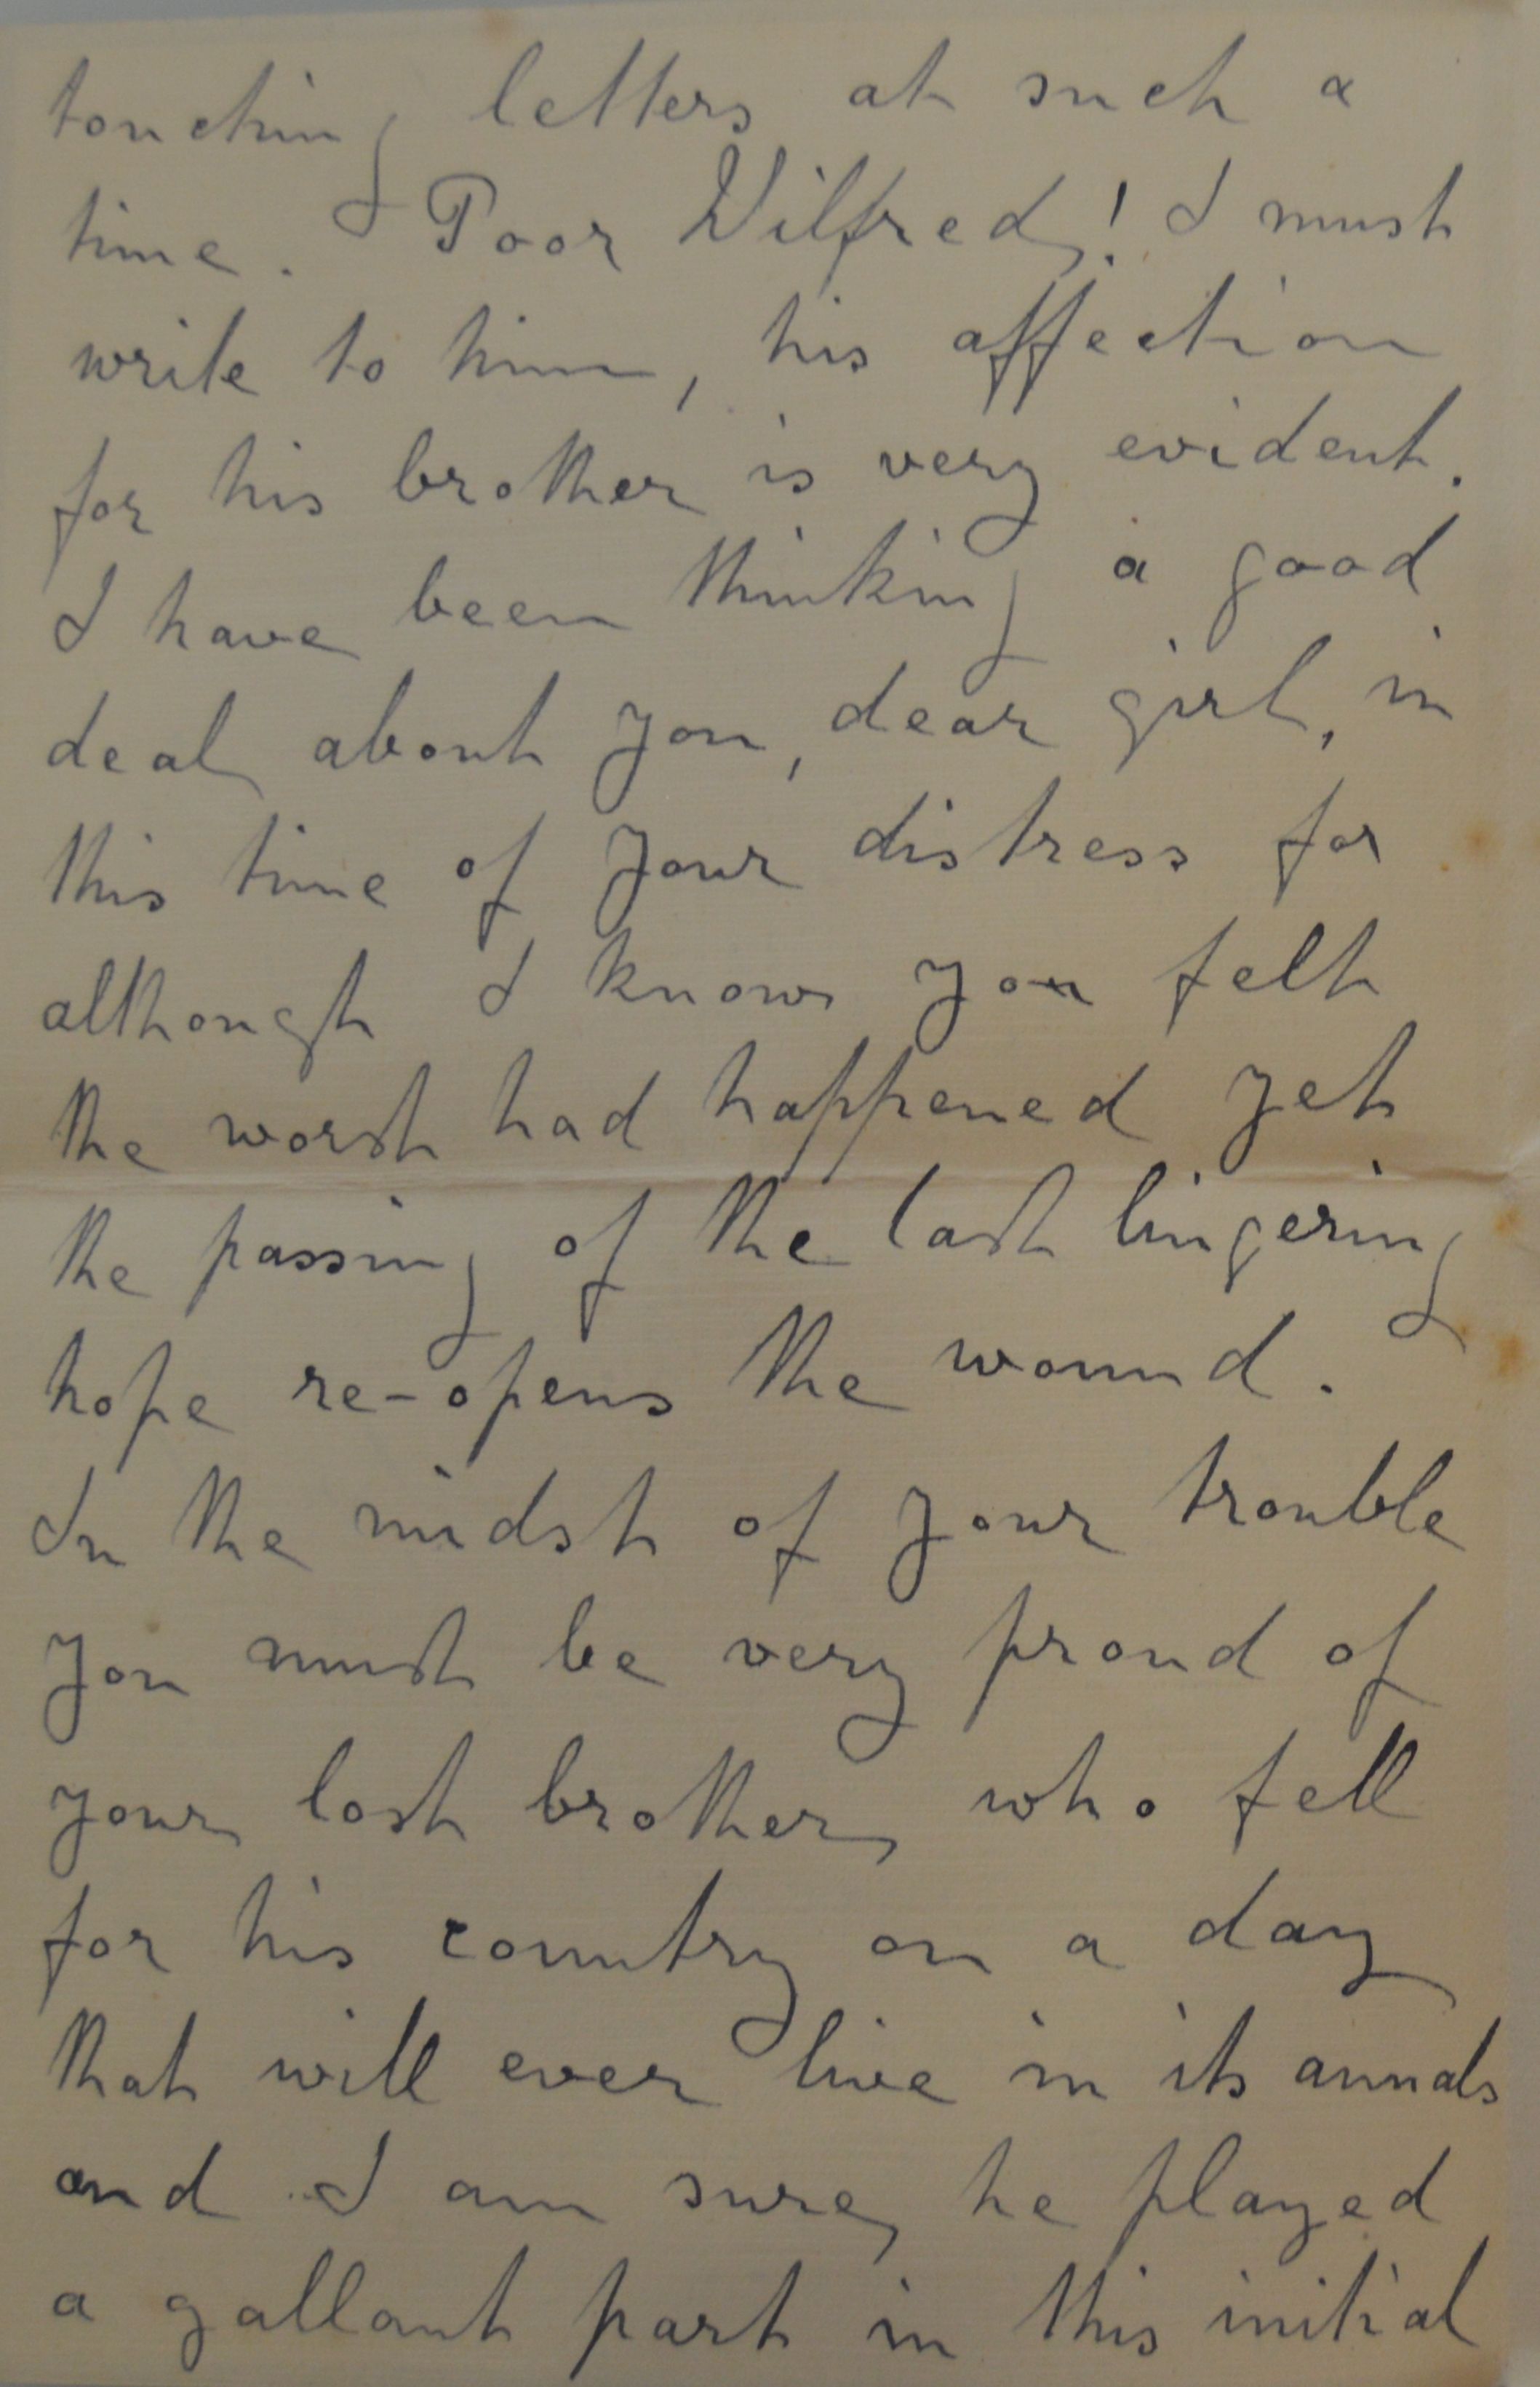 touching letters at such a
time. Poor Wilfred! I must
write to him, his affection
for his brother is very evident.
I have been thinking a good
deal about you, dear girl, in
this time of your distress for
although I know you felt
the worst had happened yet
the passing of the last lingering
hope re-opens the wound.
In the midst of your trouble
you must be very proud of
your lost brother, who fell
for his country on a day
that will ever live in its annals
and I am sure, he played
a gallant part in this initial